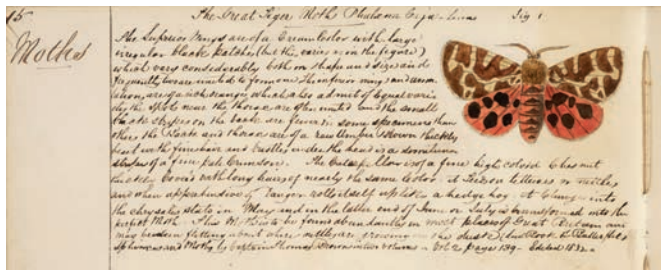 15
The Great Tyger Moth Phalana Caja - Linnæ Fig 1
Moths
The Superior Wings are of a Cream Color with large
irregular black patches (but the varies in the figure)
which vary considerably both in shape and size and
frequently two are united to form one The inferior wings and
are of a rich orange which also admit of equal
the spots near the thorax are often united and the small
black stripes on the back are fewer in some specimens than
others the Head and thorax are of a raw Umber brown thickly
beset with fine hair and under the head is a
of a fine pale Crimson. The Caterpillar is of a fine high colored Chesnut
thickly Cover'd with long hairs of nearly the same Color it feeds on lettuces or nettles
and when apprehensive of danger rolls itself up like a hedge hog it Changes into
the chrysalis state in May and in the latter end of June or July is transformed into the
perfect Moth. This is to be found abundantly in most places of Great Britain and
may be seen flitting about where nettles are growing in the dusk the Book of Butterflies
Sphinxes and Moths by Captain Thomas Brown in two volumes - Vol 2 page 139 - Edited 1832